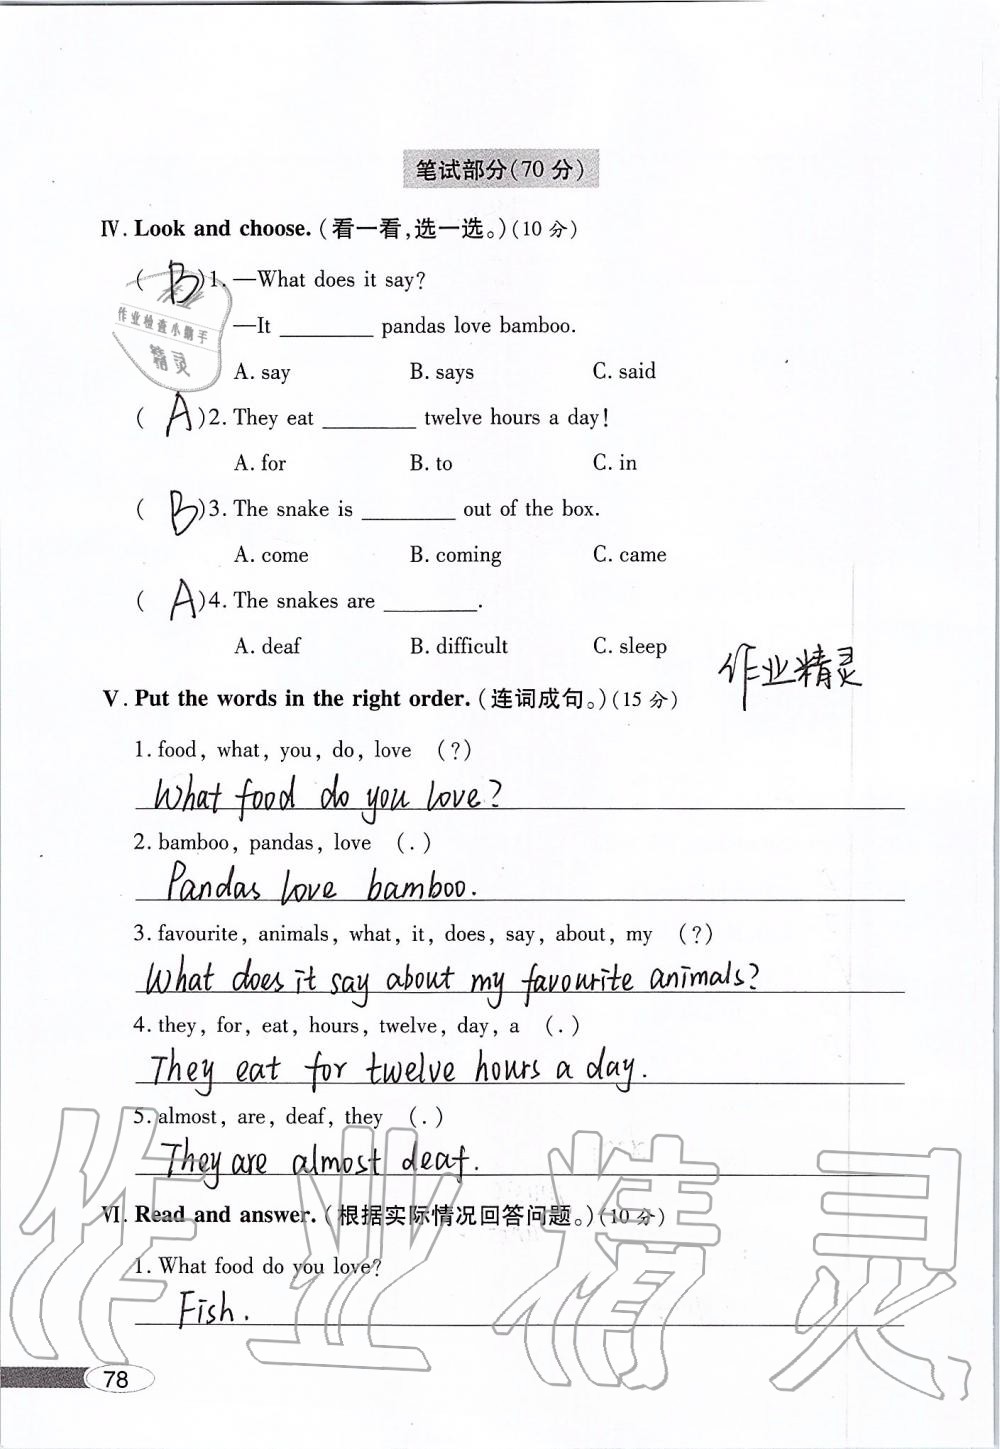 笔试部分(70 分)
Ⅳ. Look and choose.(看一看,选一选。)(10 分)
( B )1. —What does it say?
—It ________ pandas love bamboo.
A. say B. says C. said
( A )2. They eat ________ twelve hours a day!
A. for B. to C. in
( B )3. The snake is ________ out of the box.
A. come B. coming C. came
( A )4. The snakes are ________.
A. deaf B. difficult C. sleep
作业
作业检查小帮手
精灵
作业精灵
Ⅴ. Put the words in the right order.(连词成句。)(15 分)
1. food, what, you, do, love (?)
What food do you love?
2. bamboo, pandas, love (.)
Pandas love bamboo.
3. favourite, animals, what, it, does, say, about, my (?)
What does it say about my favourite animals?
4. they, for, eat, hours, twelve, day, a (.)
They eat for twelve hours a day.
5. almost, are, deaf, they (.)
They are almost deaf.
Ⅵ. Read and answer.(根据实际情况回答问题。)(10 分)
1. What food do you love?
Fish.
作业精灵
78